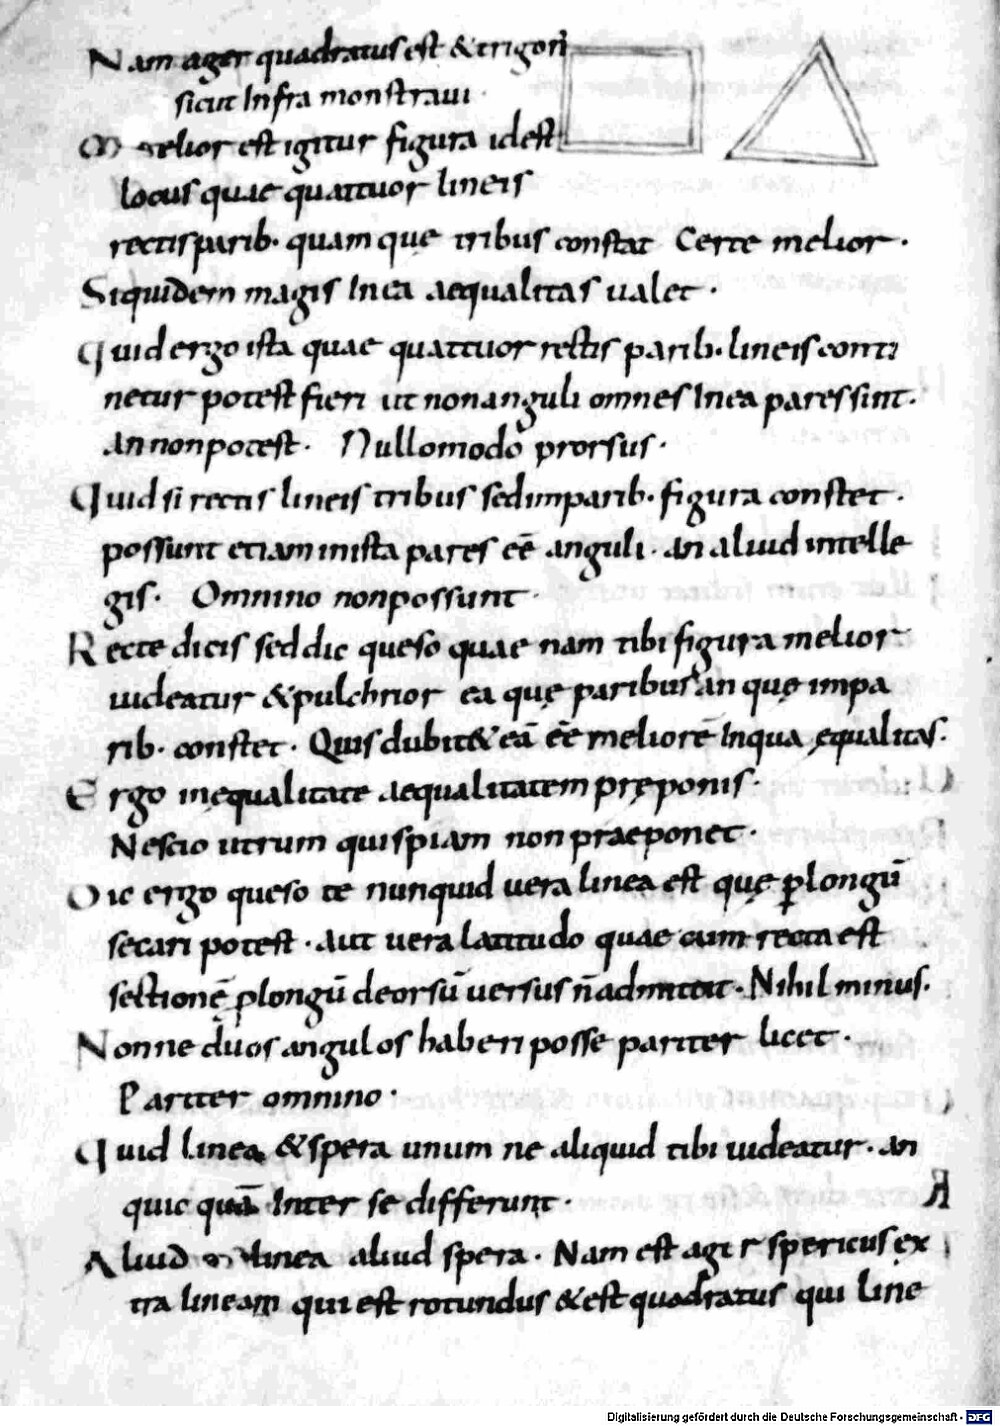 Nam ager quadratus est & trigon
sicut Infra monstraui
Melior est igitur figura idest
locus quae quattuor lineis
rectis parib· quam quę tribus constat Certe melior·
Siquidem magis Inea aequalitas ualet·
Quid ergo ista quae quattuor rectis parib· lineis conti
netur potest fieri ut non anguli omnes Inea pares sint·
An non potest· Nullomodo prorsus·
Quid si rectis lineis tribus sed imparib· figura constet·
possunt etiam inista pares eē anguli· an aliud intelle
gis· Omnino non possunt·
Recte dicis sed dic queso quae nam tibi figura melior
uideatur & pulchrior ea quę paribus an quę impa
rib· constet· Quis dubit& eā eē meliorē Inqua ęqualitas·
Ergo inęqualitate aequalitatem pręponis·
Nescio utrum quispiam non praeponet·
Dic ergo queso te nunquid uera linea est quę ꝑlongū
secari potest· aut uera latitudo quae cum recta est
sectionē ꝑlongū deorsū uersus n̄ admittat· Nihil minus·
Nonne duos angulos haberi posse pariter licet·
Pariter omnino·
Quid linea & spera unum ne aliquid tibi uideatur· an
quic quā Inter se differunt·
Aliud linea aliud spera· Nam est ager spericus ex
tra lineam qui est rotundus & est quadratus qui line
Digitalisierung gefördert durch die Deutsche Forschungsgemeinschaft - DFG